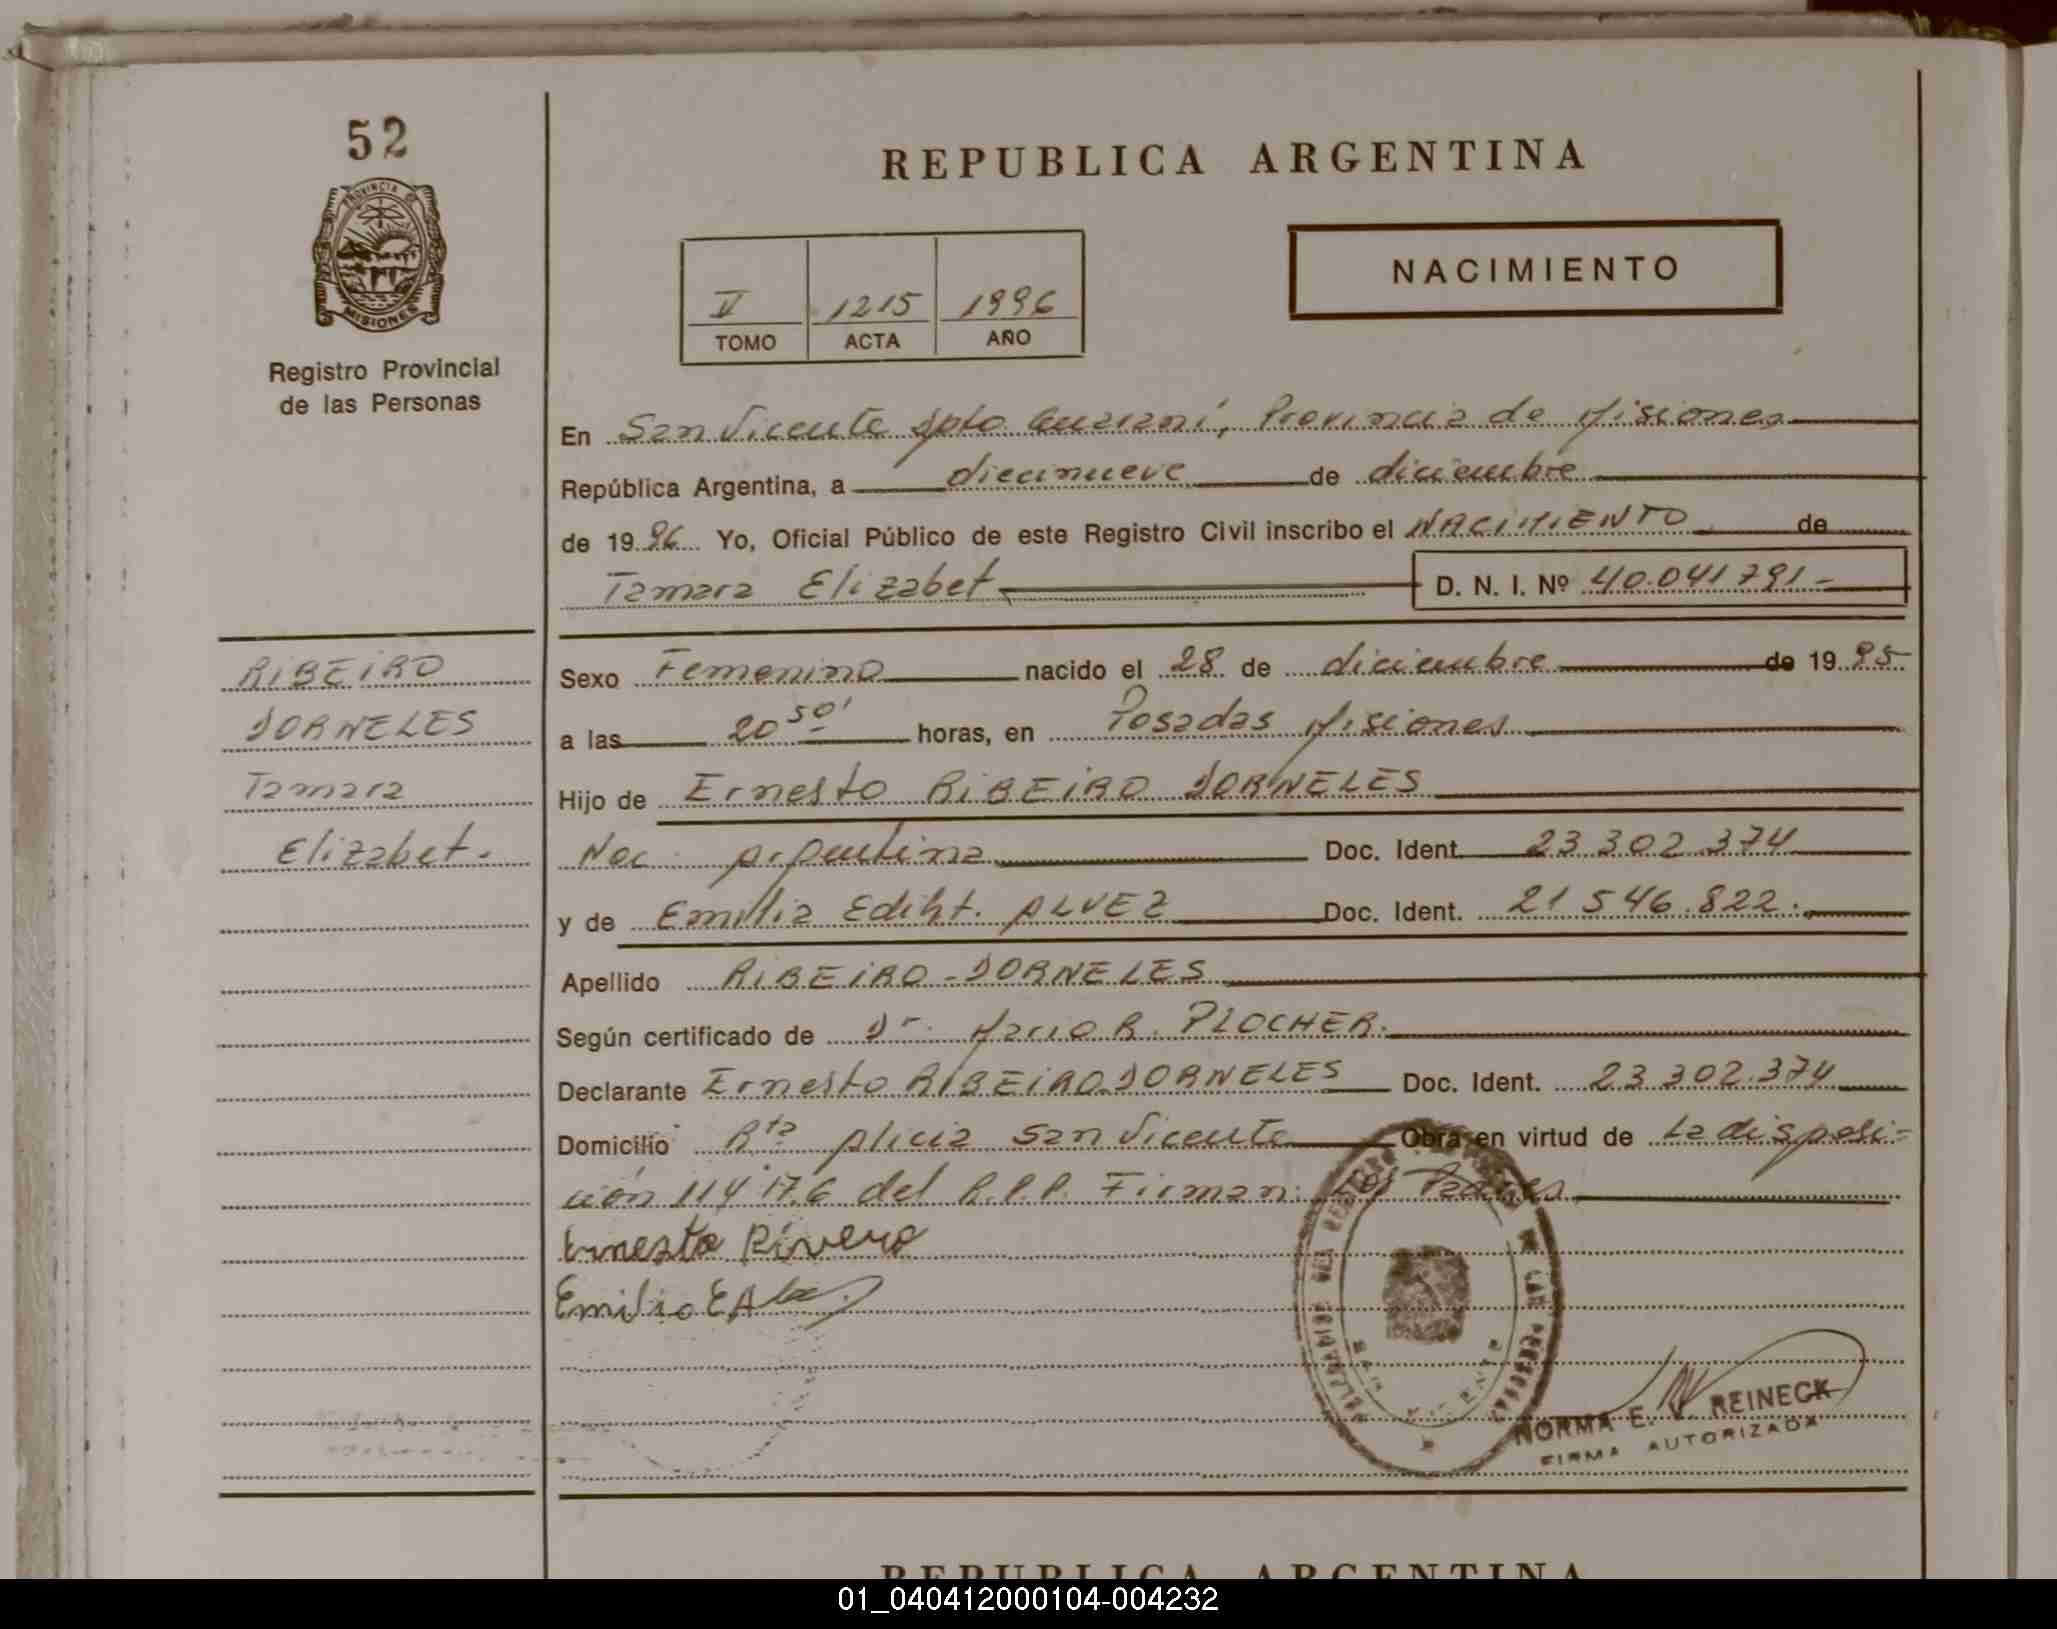 52
PROVINCIA DE
MISIONES
Registro Provincial
de las Personas
REPUBLICA ARGENTINA
NACIMIENTO
V 1215 1996
TOMO ACTA AÑO
En San Vicente Dpto Guaraní, Provincia de Misiones
República Argentina, a diecinueve de diciembre
de 1996 Yo, Oficial Público de este Registro Civil inscribo el NACIMIENTO de
Tamara Elizabet D. N. I. Nº 40.041791-
RiBEiRO
DORNELES
Tamara
Elizabet.
Sexo Femenino nacido el 28 de diciembre de 1995
a las 20 50' horas, en Posadas Misiones
Hijo de Ernesto RiBEiRO DORNELES
Nac. Argentina Doc. Ident. 23 302 374
y de Emilia Ediht. ALVEZ Doc. Ident. 21 546.822.
Apellido RiBEiRO-DORNELES
Según certificado de Dr. Mario R. PLOCHER.
Declarante Ernesto RiBEiRO DORNELES Doc. Ident. 23 302.374
Domicilio Rta Alicia San Vicente Obra en virtud de La disposi-
ción 114 176 del R.P.P. Firman: Los Padres
Ernesto Rivero
Emilia E Alvez
DELEGACION DEL REGISTRO DE LAS PERSONAS
SAN VICENTE
NORMA E. V. REINECK
FIRMA AUTORIZADA
REPUBLICA ARGENTINA
01_040412000104-004232